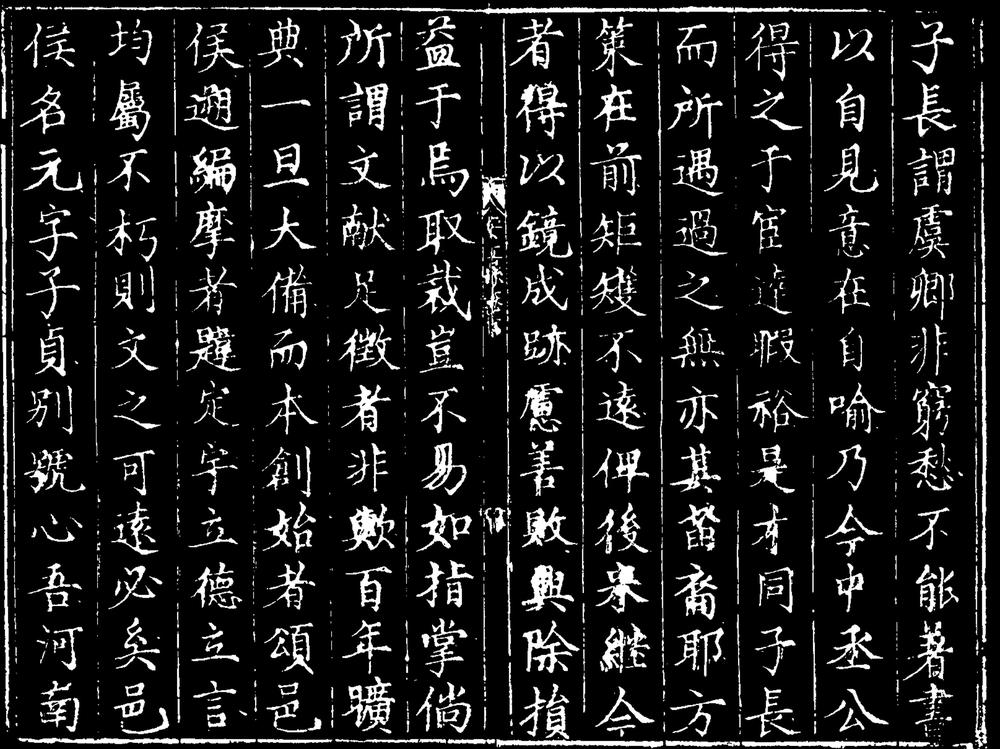 子長謂虞卿非窮愁不能著書
以自見意在自喻乃今中丞公
得之于宦達暇裕是才同子長
而所遇過之無亦其苗裔耶方
策在前矩矱不遠俾後來繼今
者得以鏡成跡慮善敗興除損
益于焉取裁豈不易如指掌倘
所謂文献足徵者非歟百年曠
典一旦大備而本創始者頌邑
侯遡編摩者題定宇立德立言
均屬不朽則文之可遠必矣邑
侯名元字子貞別號心吾河南